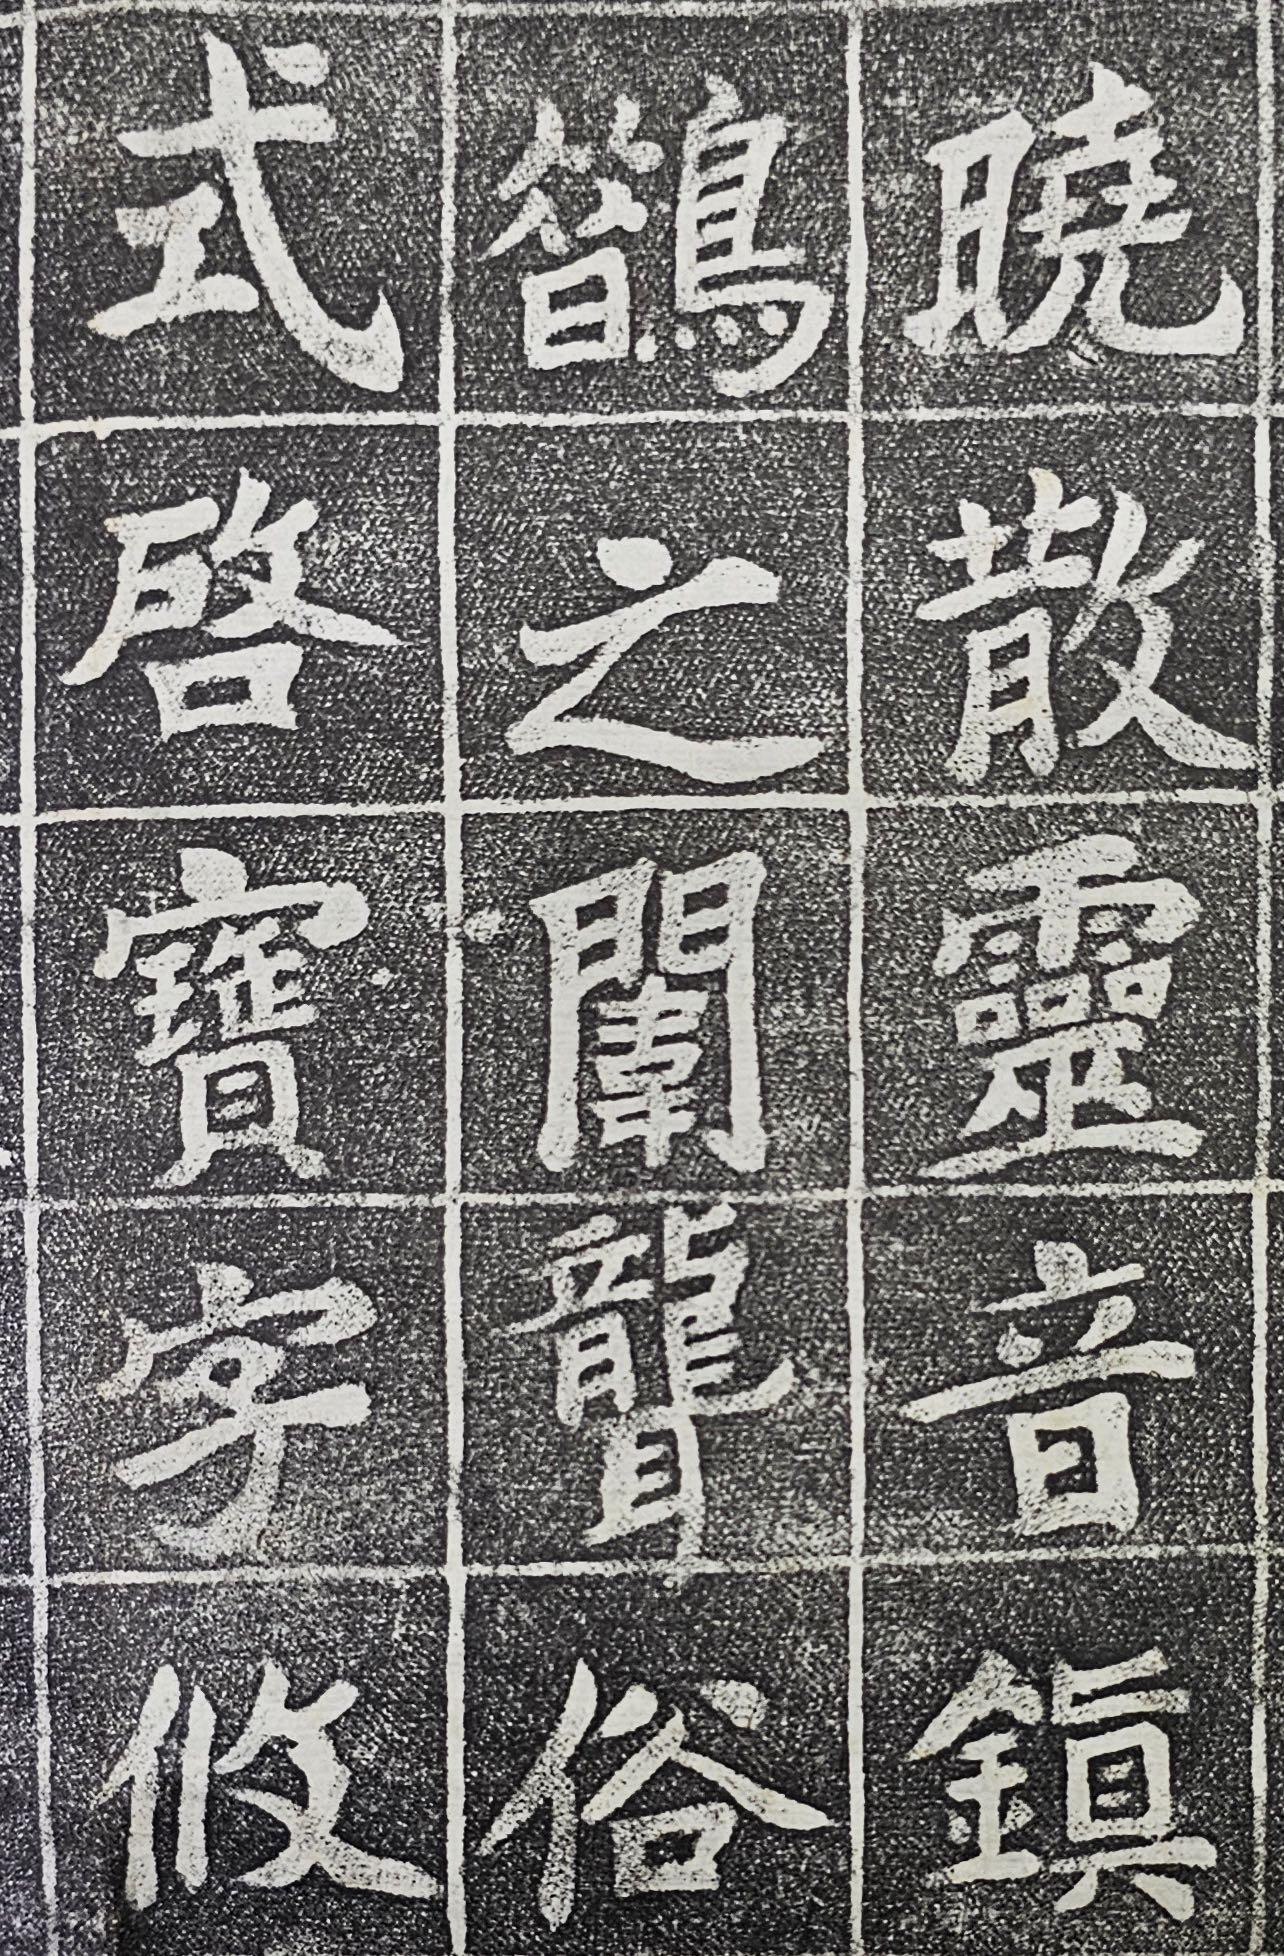 曉散靈音鎮
鵲之闈聾俗
式啓寶字攸